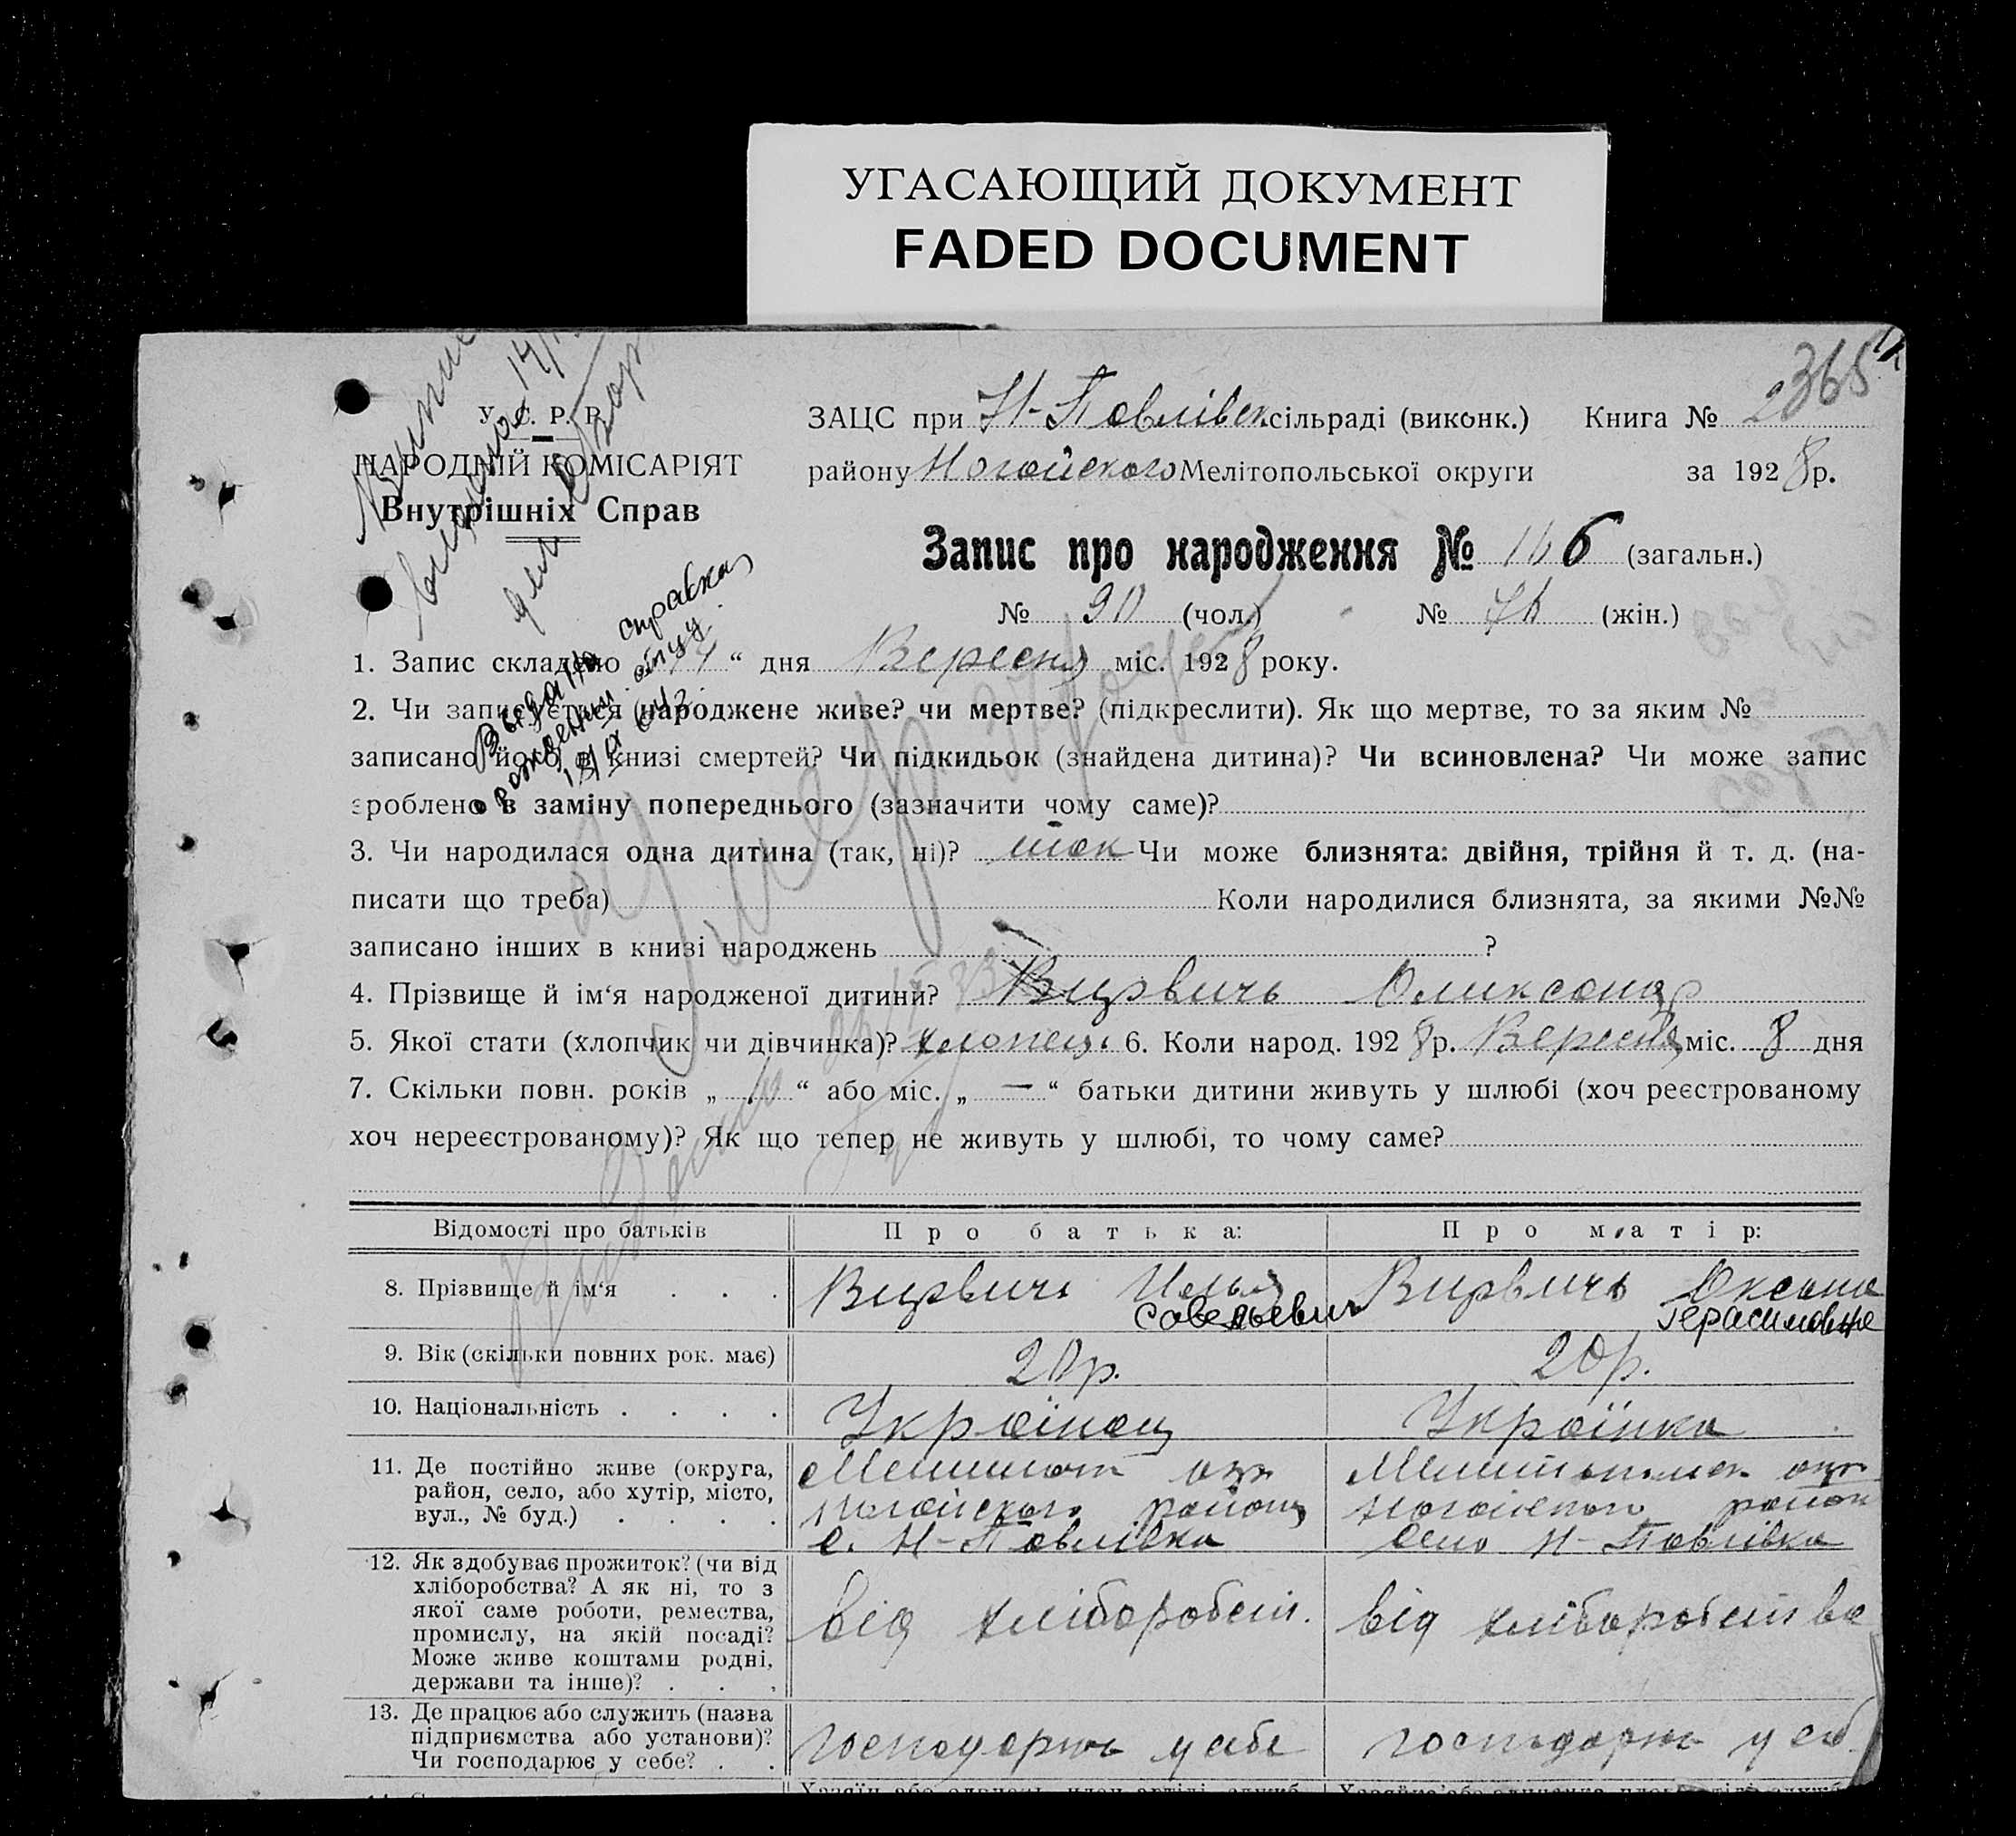 УГАСАЮЩИЙ ДОКУМЕНТ
FADED DOCUMENT
У. С. Р. Р.
НАРОДНІЙ КОМІСАРІЯТ
Внутрішніх Справ
ЗАЦС при Н-Павлівськ сільраді (виконк.) Книга № 2365
району Ногайского Мелітопольської округи за 1928 р.
Запис про народження № 166 (загальн.)
№ 90 (чол.) № 76 (жін.)
Выдана справка
о рождении отцу
1. Запис складено 14 “ дня Вересня міс. 1928 року.
2. Чи записується народжене живе? чи мертве? (підкреслити). Як що мертве, то за яким №
записано його в книзі смертей? Чи підкидьок (знайдена дитина)? Чи всиновлена? Чи може запис
зроблено в заміну попереднього (зазначити чому саме)?
3. Чи народилася одна дитина (так, ні)? так Чи може близнята: двійня, трійня й т. д. (на-
писати що треба) Коли народилися близнята, за якими №№
записано інших в книзі народжень ?
4. Прізвище й ім‘я народженої дитини? Вирвичь Олександр
5. Якої стати (хлопчик чи дівчинка)? хлопець 6. Коли народ. 1928 р. Вересня міс. 8 дня
7. Скільки повн. років „ 1 “ або міс. „ — “ батьки дитини живуть у шлюбі (хоч реєстрованому
хоч нереєстрованому)? Як що тепер не живуть у шлюбі, то чому саме?
Умер
Відомості про батьків Про батька: Про матір:
8. Прізвище й ім‘я . . . Вирвичь Илья Савельевич Вирвичь Оксана Герасимовна
9. Вік (скільки повних рок. має) 20 р. 20 р.
10. Національність . . . . Українец Українка
11. Де постійно живе (округа, район, село, або хутір, місто, вул., № буд.) . . . . Мелитоп окр Ногайского району с. Н-Павлівка Мелитопольск окр Ногайского район село Н-Павлівка
12. Як здобуває прожиток? (чи від хліборобства? А як ні, то з якої саме роботи, ремества, промислу, на якій посаді? Може живе коштами родні, держави та інше)? . . . від хліборобст. від хліборобства
13. Де працює або служить (назва підприємства або установи)? Чи господарює у себе? . . господарює у себе господарює у себ.